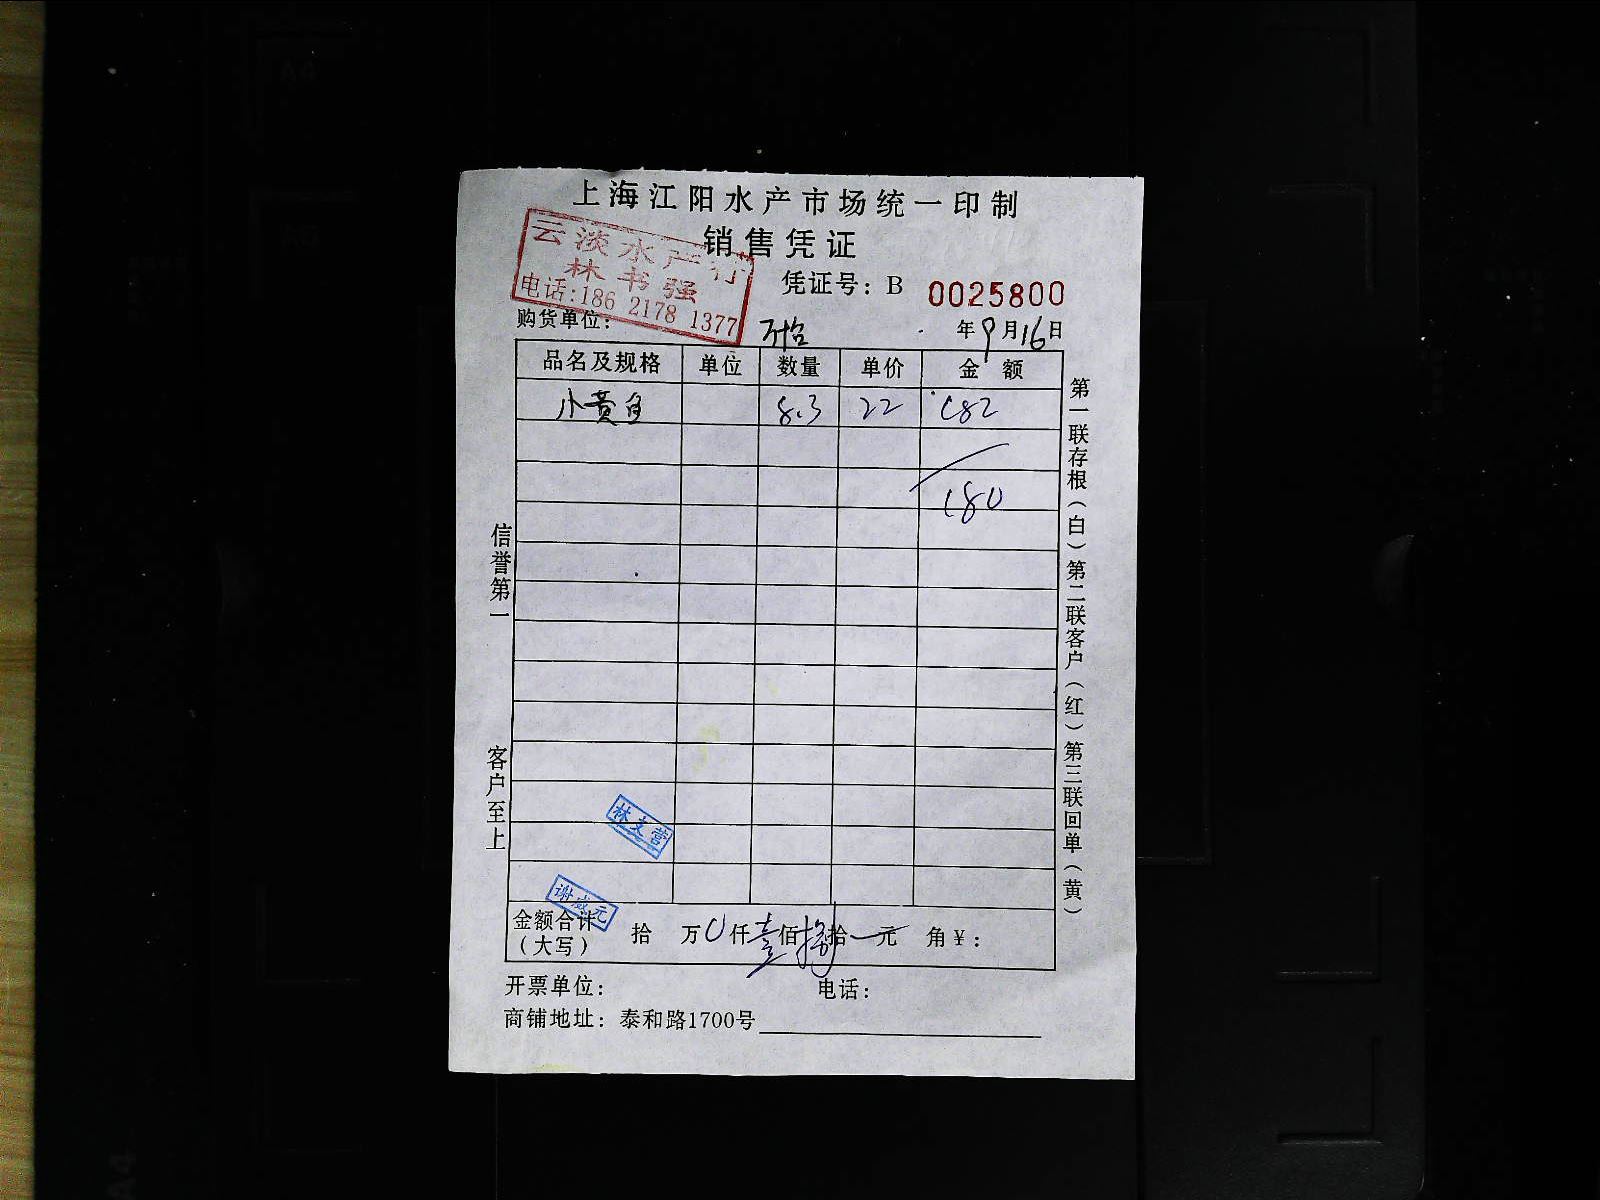 上海江阳水产市场统一印制
销售凭证
云淡水产行
林书强
电话:186 2178 1377
凭证号: B 0025800
购货单位: 万怡
年9月16日
品名及规格 单位 数量 单价 金额
小黄鱼 8.3 22 182
180
信誉第一
客户至上
第一联存根(白)第二联客户(红)第三联回单(黄)
林文营
谢盛元
金额合计(大写) 拾 万 0 仟 壹 佰 捌 拾 元 角 ¥:
开票单位: 电话:
商铺地址: 泰和路1700号